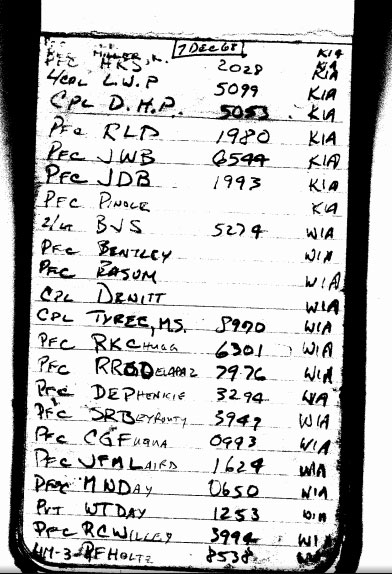 7 DEC 68
PFC MILLER, R. KIA
PFC HRS 2028 KIA
L/CPL L.W.P 5099 KIA
CPL D.H.P. 5053 KIA
PFC RLP 1980 KIA
PFC JWB 6544 KIA
PFC JDB 1993 KIA
PFC PINGLE KIA
2/LT BJS 5274 WIA
PFC BENTLEY WIA
PFC RASUM WIA
CPL DEWITT WIA
CPL TYREE, M.S. 8970 WIA
PFC RKCHUGG 6301 WIA
PFC RRODELAPAZ 7976 WIA
PFC DEPHENKIE 3294 WIA
PFC SRBEYROUTY 3947 WIA
PFC CGFUQUA 0993 WIA
PFC JFMLAIRD 1624 WIA
PFC MWDAY 0650 WIA
PVT WTDAY 1253 WIA
PFC RCWILLEY 3994 WIA
HM-3 RFHOLTZ 8538 WIA